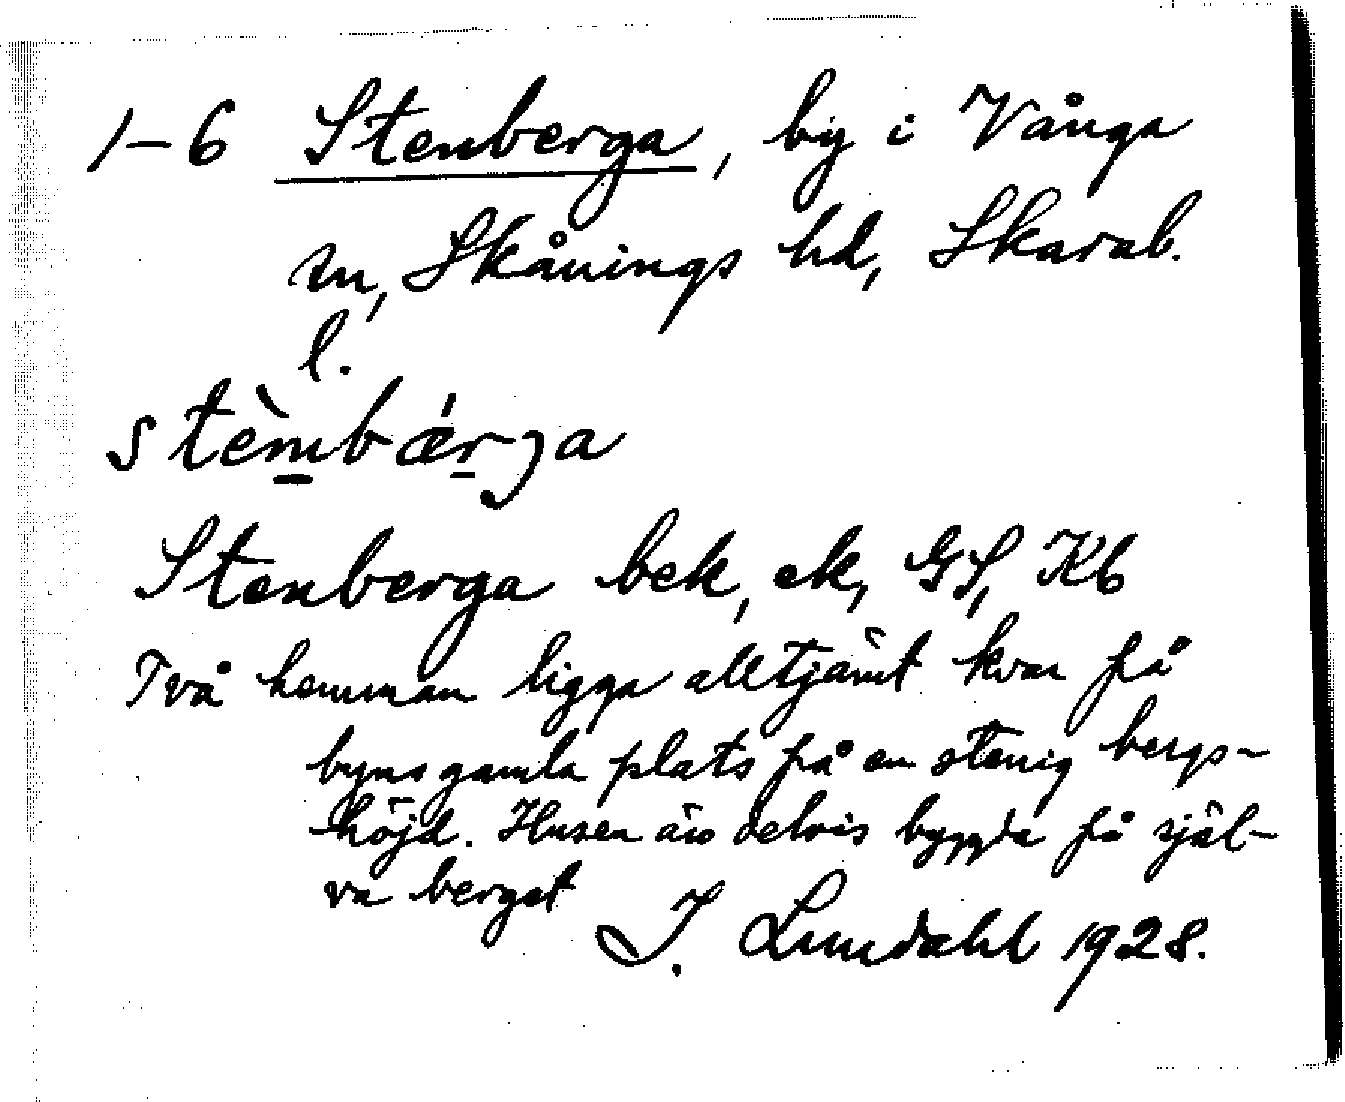 1–6 Stenberga, by i Vånga
sn, Skånings hd, Skarab.
l.
stèmbǽrja
Stenberga bek, ek, GS, Kb
Två hemman ligga alltjämt kvar på
byns gamla plats på en stenig bergs-
höjd. Husen äro delvis byggda på själ-
va berget
I. Lundahl 1928.